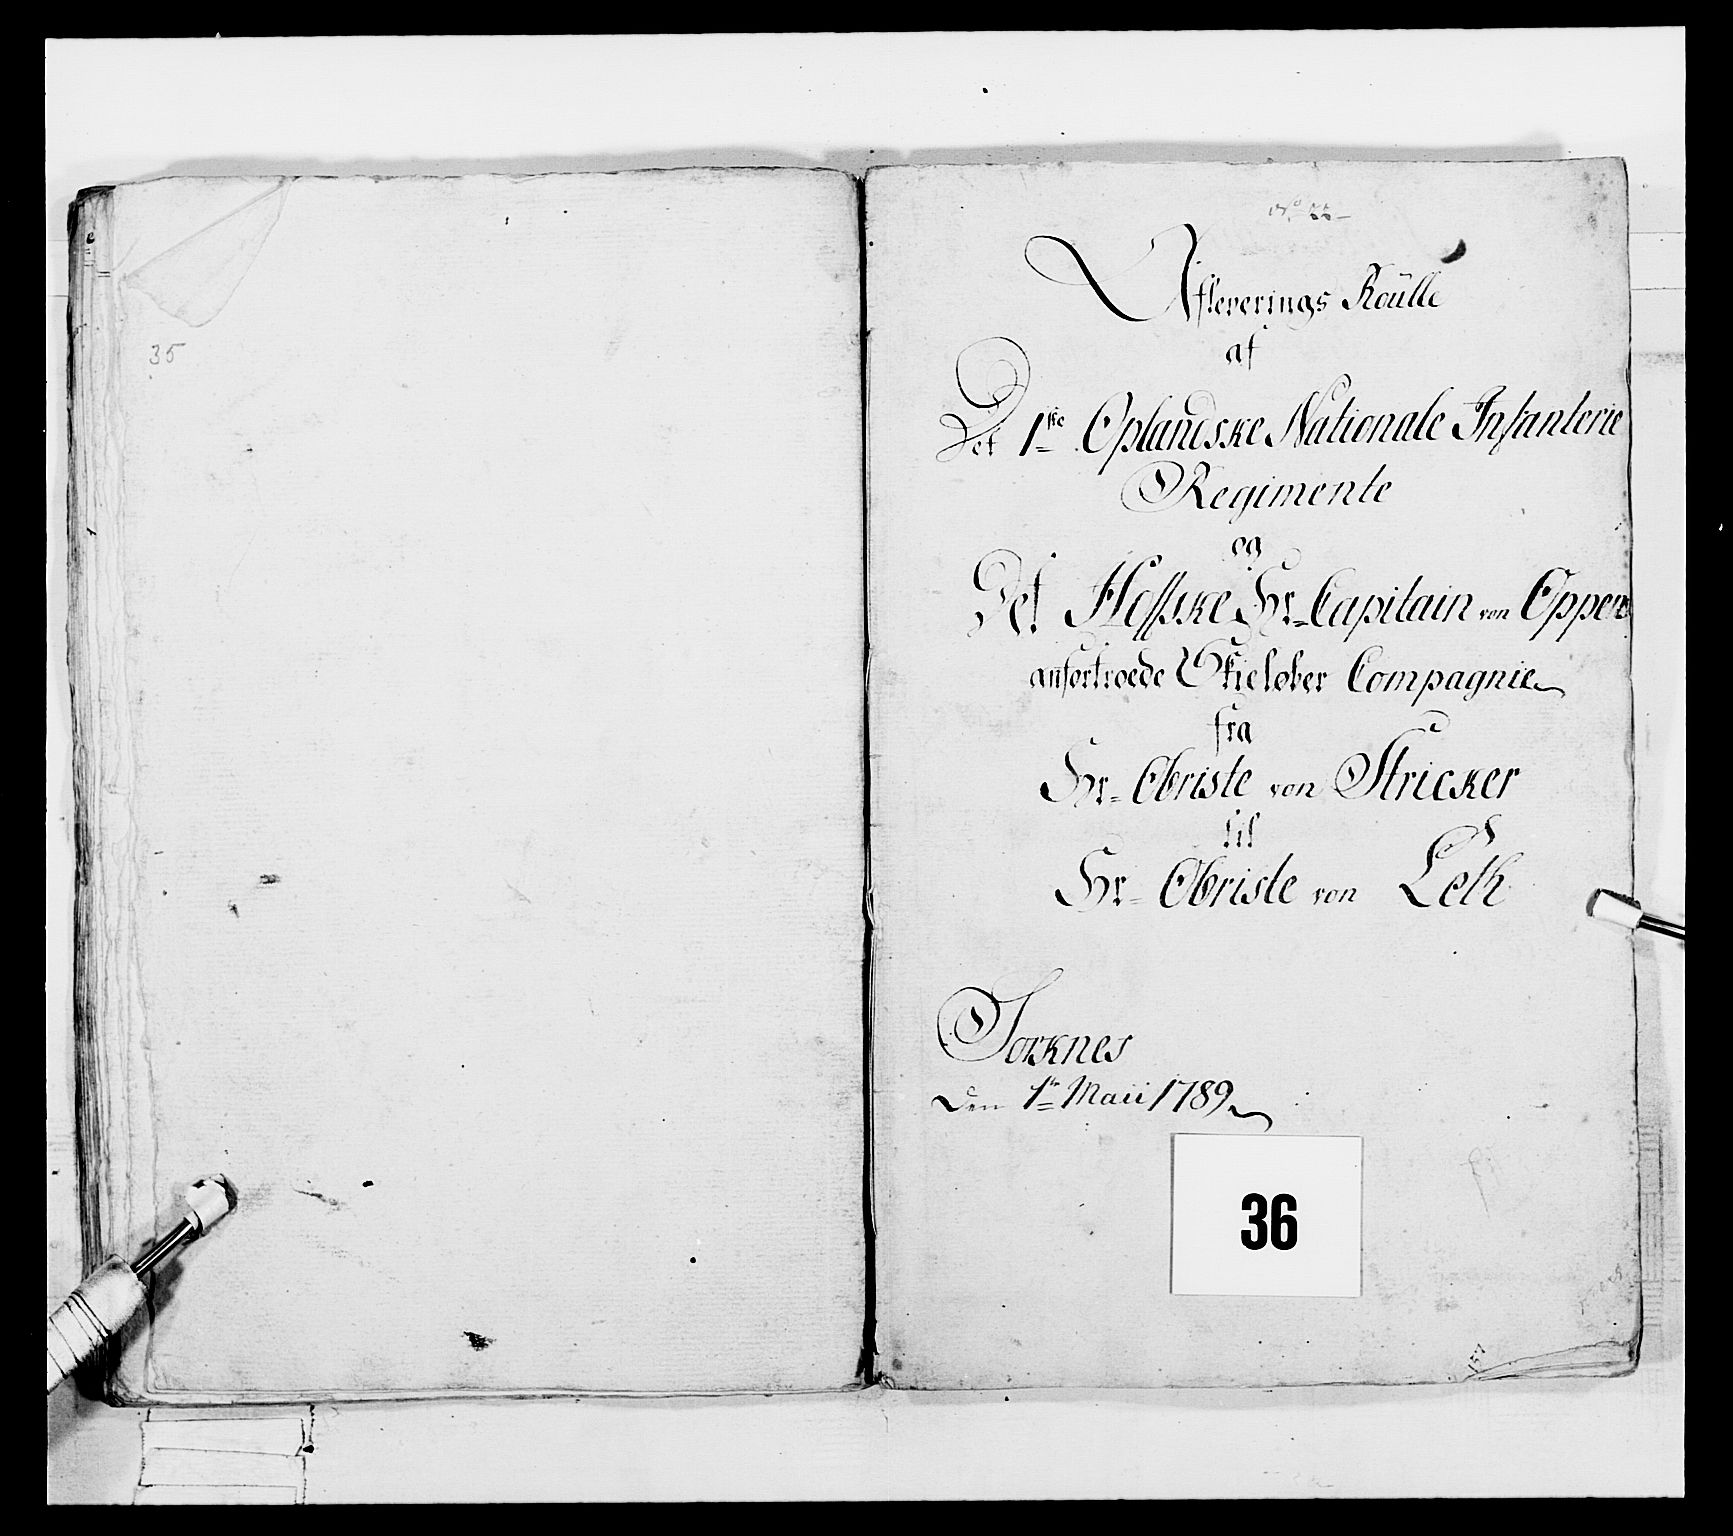 35
Afleverings Roülle
af
Det 1ste Oplandske Nationale Infanterie
Regimente
og
Det Hoffske Hr- Capitain von Oppen
anfortroede Skieløber Compagnie
fra
Hr- Obriste von Stricker
til
Hr- Obriste von Leth
Torknes
Den 1te Maii 1789
36
157